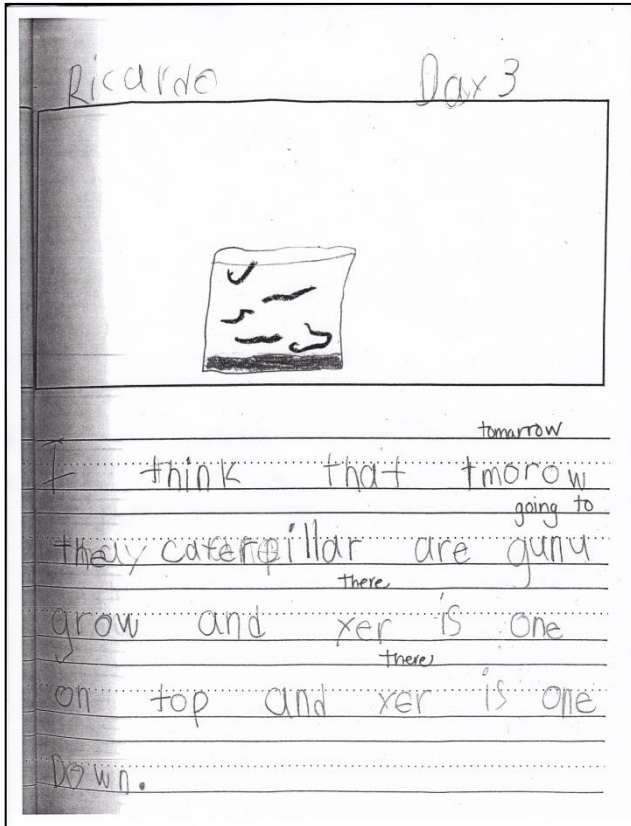 Ricardo Day 3
tomarrow
I think that tmorow
going to
theuy caterpillar are gunu
there
grow and xer is one
there
on top and xer is one
Down.